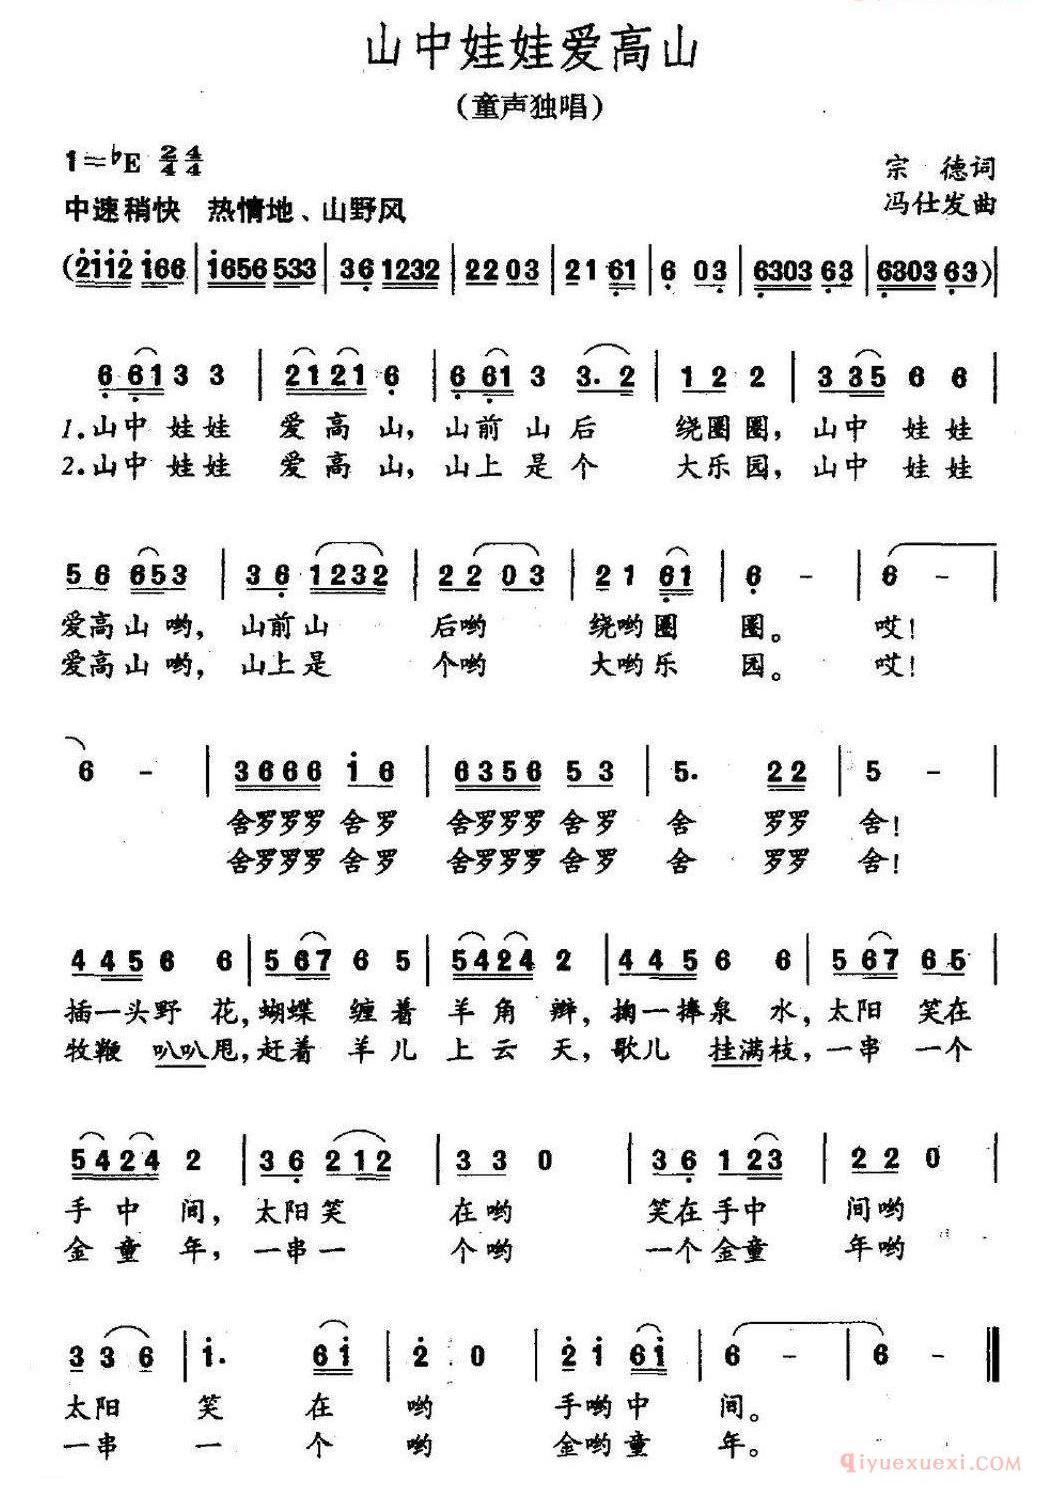 山中娃娃爱高山
（童声独唱）
1=♭E 2/4 4/4
宗 德词
中速稍快 热情地、山野风
冯仕发曲
(2112 166 | 1656 533 | 36 1232 | 22 03 | 21 61 | 6 03 | 6303 63 | 6303 63)|
6 61 3 3 | 2121 6 | 6 61 3 3. 2 | 1 2 2 | 3 35 6 6 |
1.山中 娃娃 爱 高 山, 山前 山 后 绕圈圈, 山中 娃娃
2.山中 娃娃 爱 高 山, 山上 是 个 大乐园, 山中 娃娃
56 653 | 36 1232 | 22 03 | 21 61 | 6 - | 6 - |
爱高山 哟, 山前山 后哟 绕哟圈 圈。 哎!
爱高山 哟, 山上是 个哟 大哟乐 园。 哎!
6 - | 3666 16 | 6356 53 | 5. 22 | 5 - |
舍罗罗罗 舍罗 舍罗罗罗 舍罗 舍 罗罗 舍!
舍罗罗罗 舍罗 舍罗罗罗 舍罗 舍 罗罗 舍!
4 45 6 6 | 5 67 6 5 | 5424 2 | 4 45 6 6 | 5 67 65 |
插一头野 花, 蝴蝶 缠着 羊 角 辫, 掬一捧泉 水, 太阳 笑在
牧鞭 叭叭甩, 赶着 羊儿 上 云 天, 歌儿 挂满枝, 一串 一个
5424 2 | 36 212 | 33 0 | 36 123 | 22 0 |
手 中 间, 太阳笑 在哟 笑在手中 间哟
金 童 年, 一串一 个哟 一个金童 年哟
3 3 6 | 1. 61 | 2 0 | 21 61 | 6 - | 6 - ‖
太阳 笑 在 哟 手哟中 间。
一串 一 个 哟 金哟童 年。
qiyuexuexi.COM